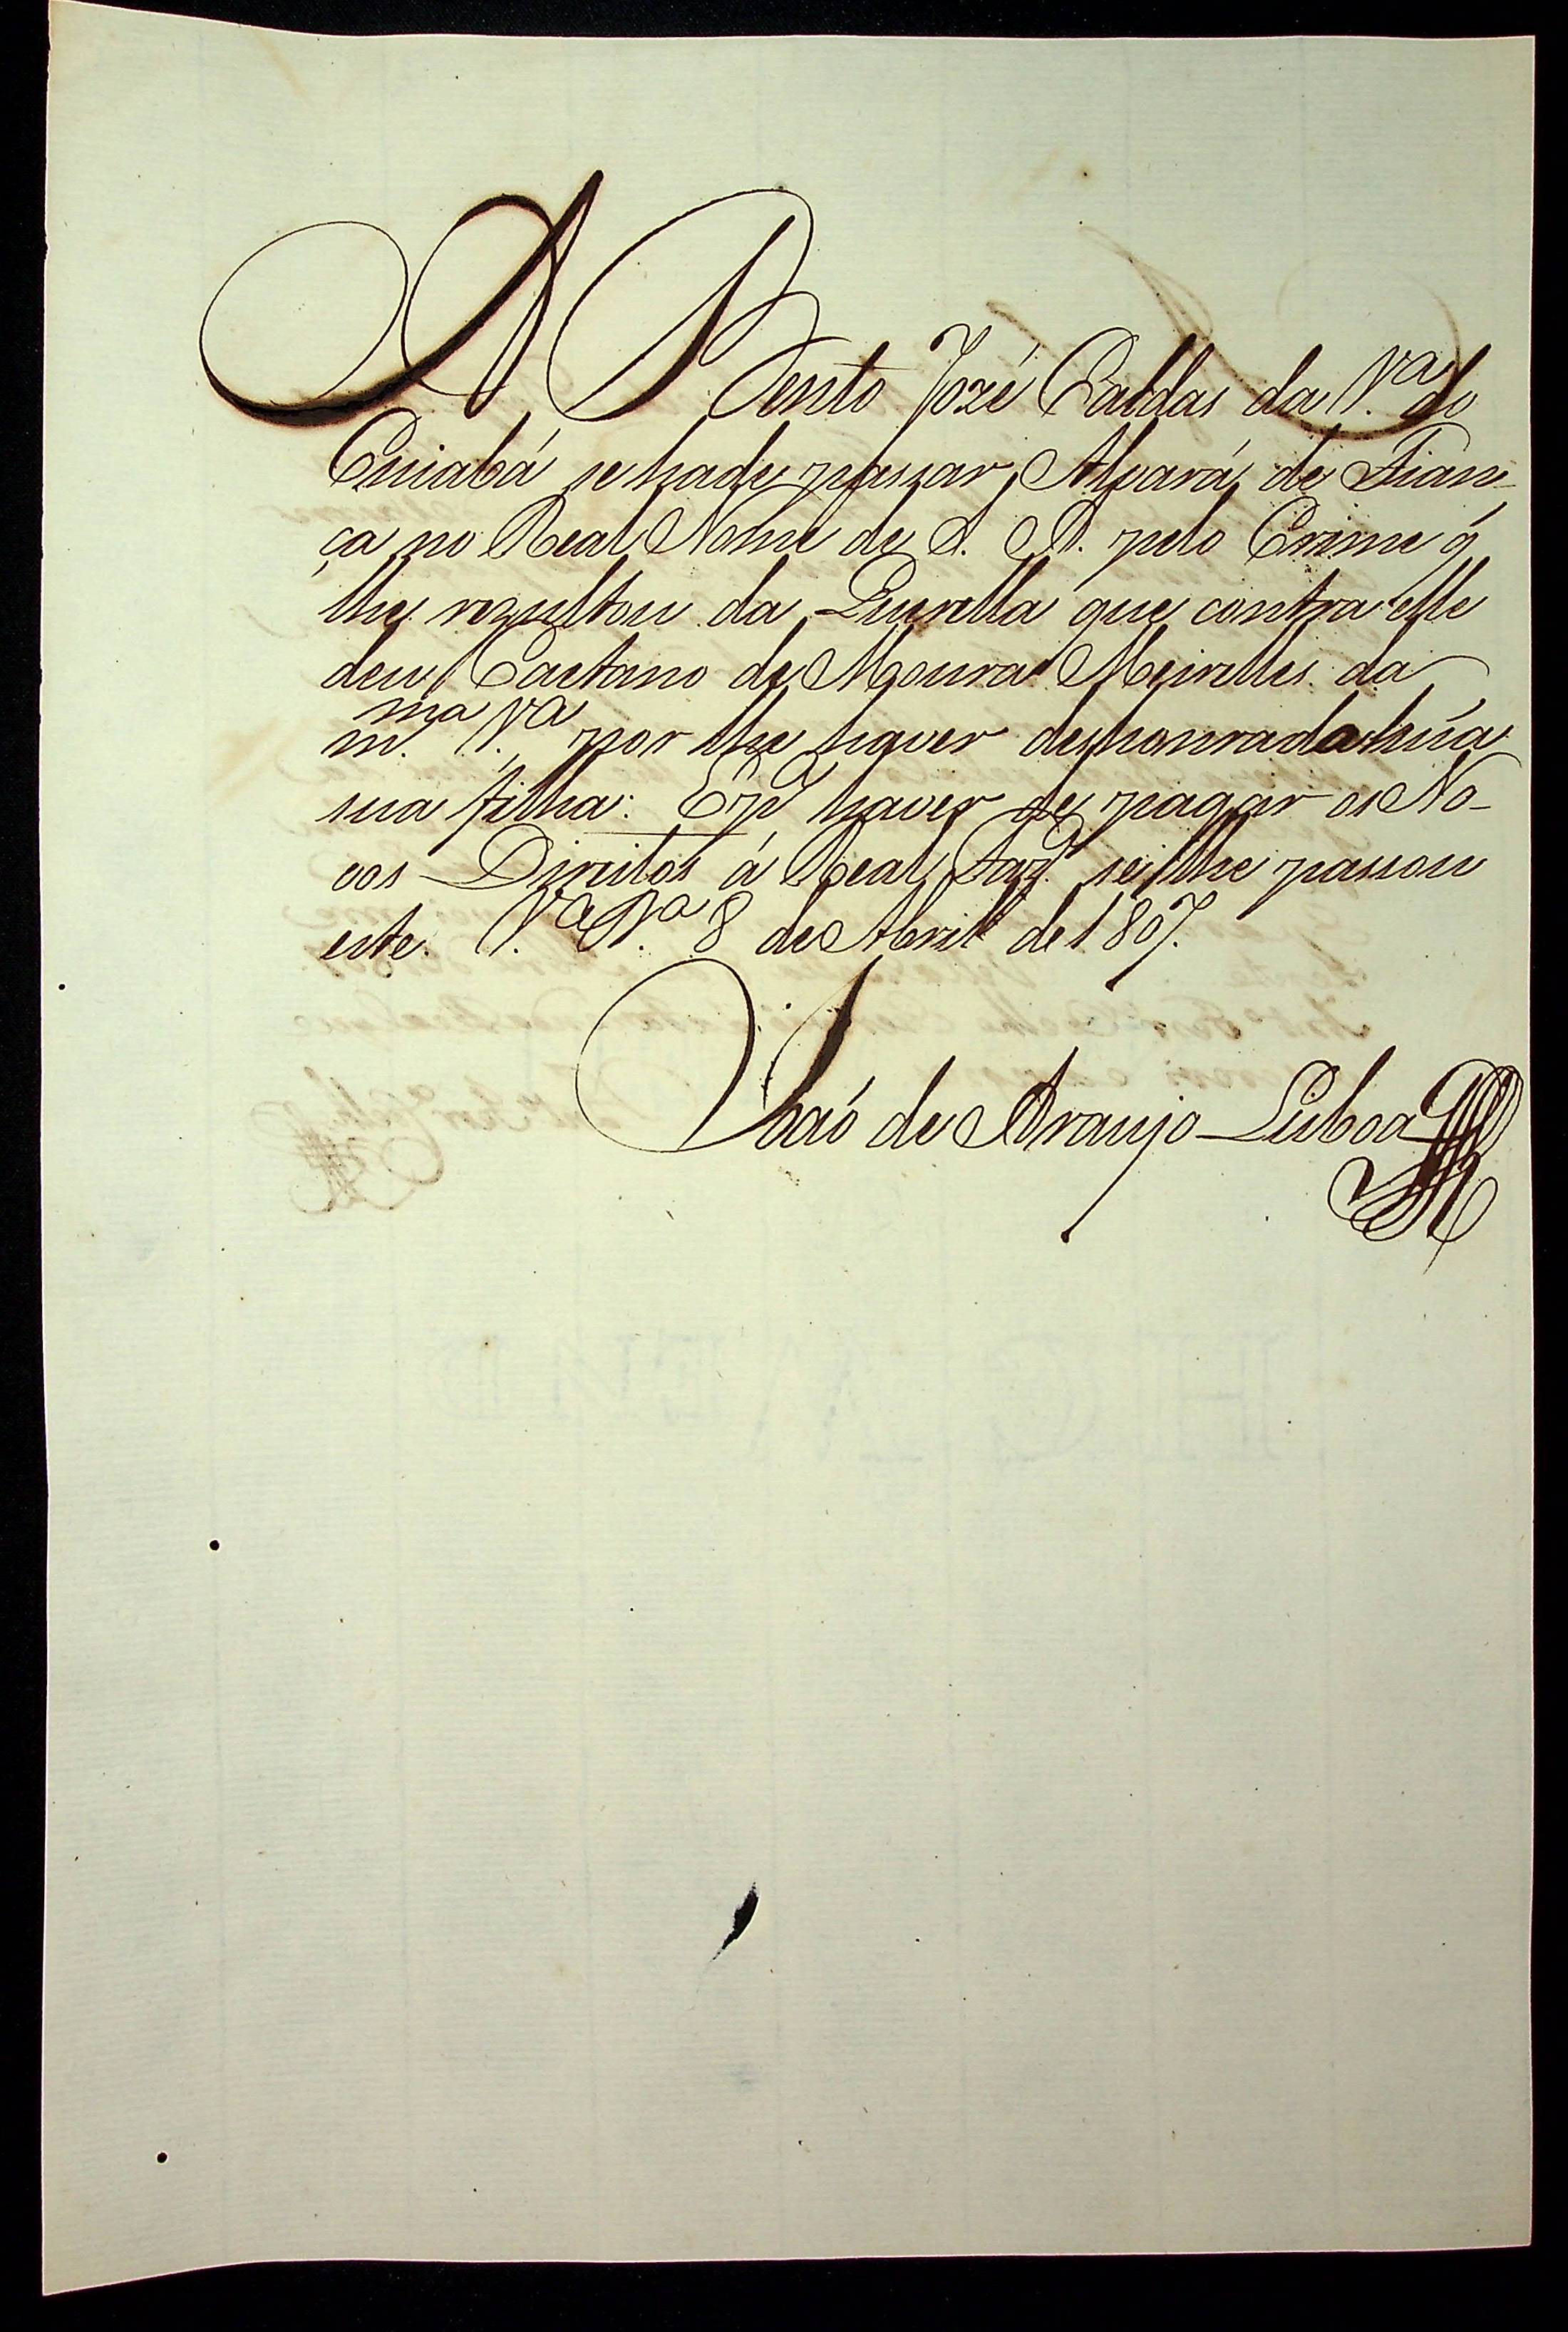 A Bento Jozé Caldas da V.ª do
Cuiabá se hade passar Alvará de Fian-
ça no Real Nome de S. A. R. pelo Crime q̃
lhe rezultou da Querella que contra elle
deu Caetano de Moura Meirelles da
m.ma V.ª por lhe haver deshonrada hũa
sua filha: E p.ª haver de pagar os No-
vos Direitos á Real Faz.ª se lhe passou
este. V.ª B.ª 8 de Abril de 1807.
Joaõ de Araujo Lisboa